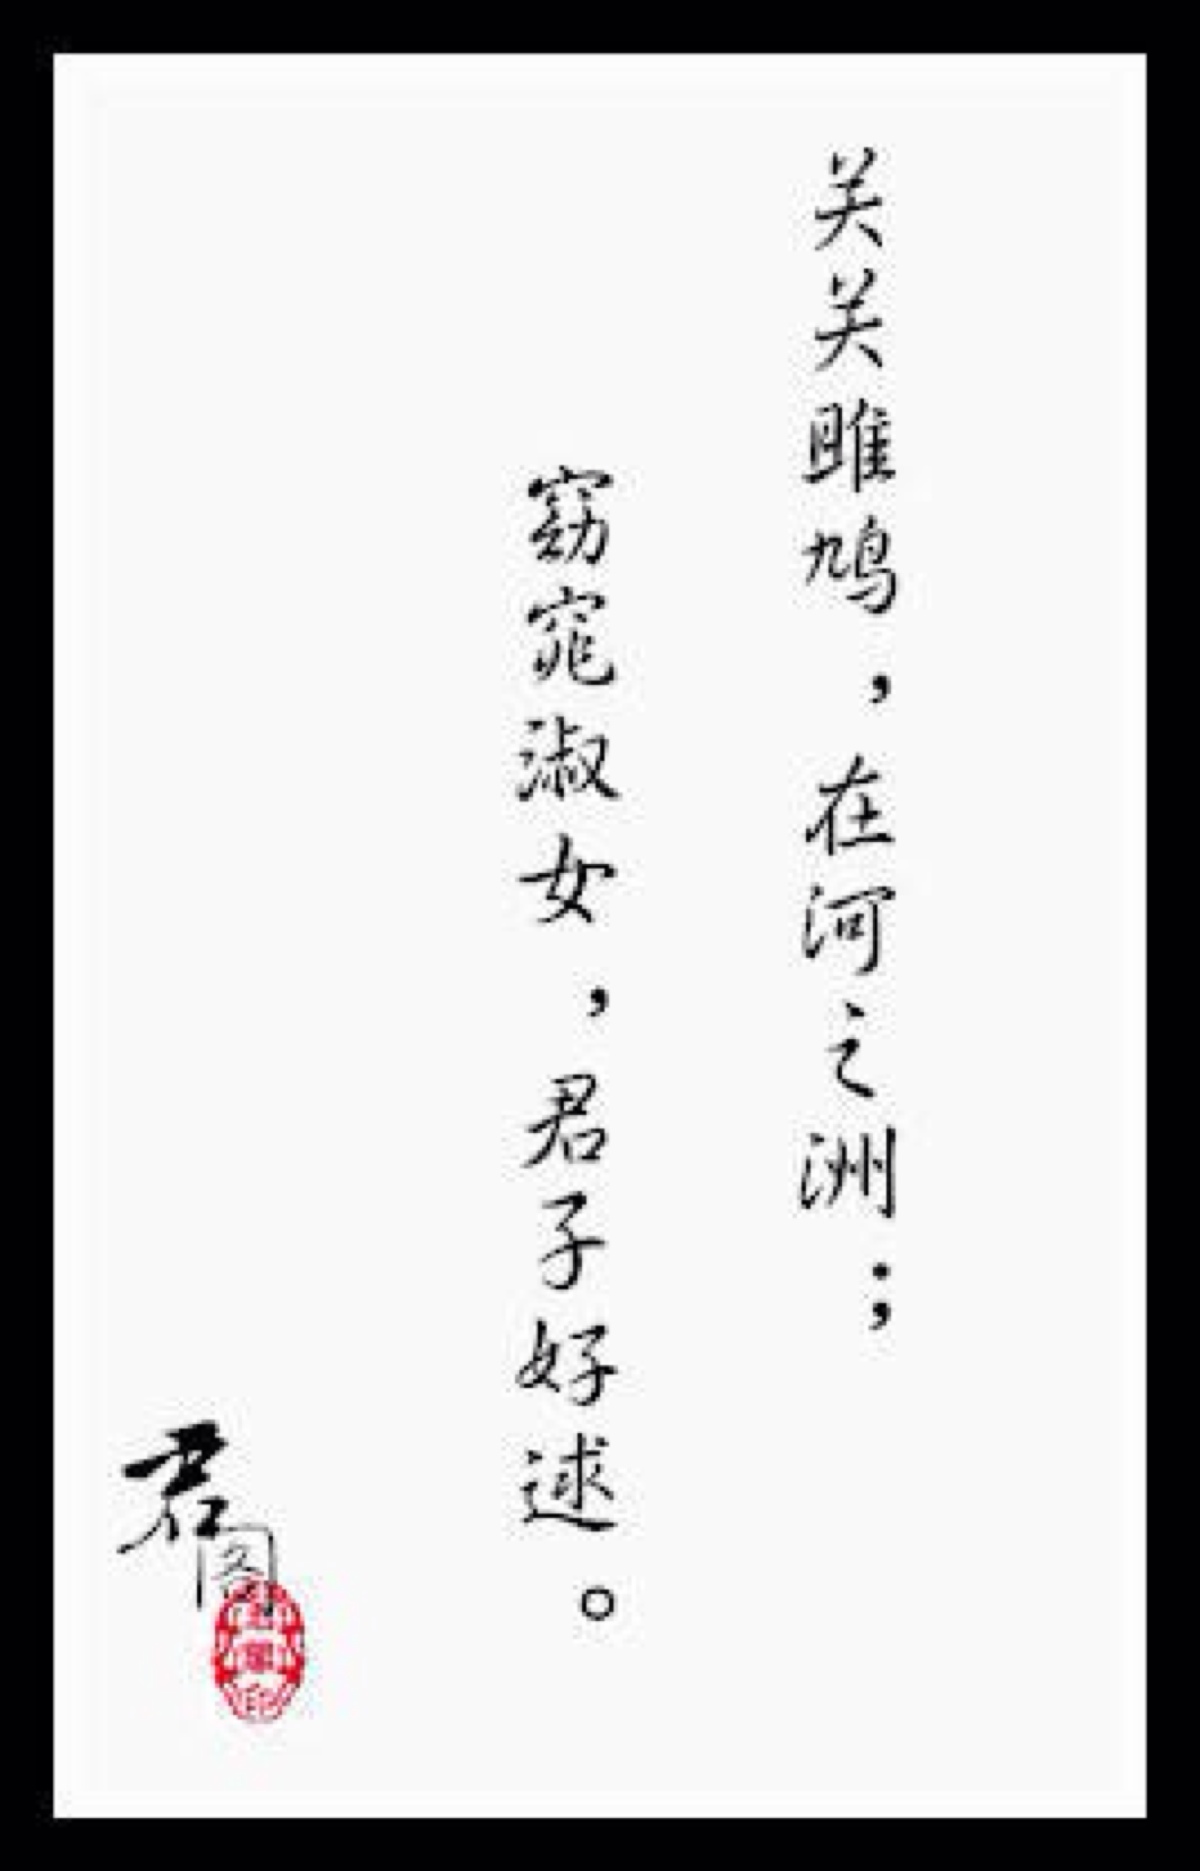 关关雎鸠，在河之洲；
窈窕淑女，君子好逑。
君阁